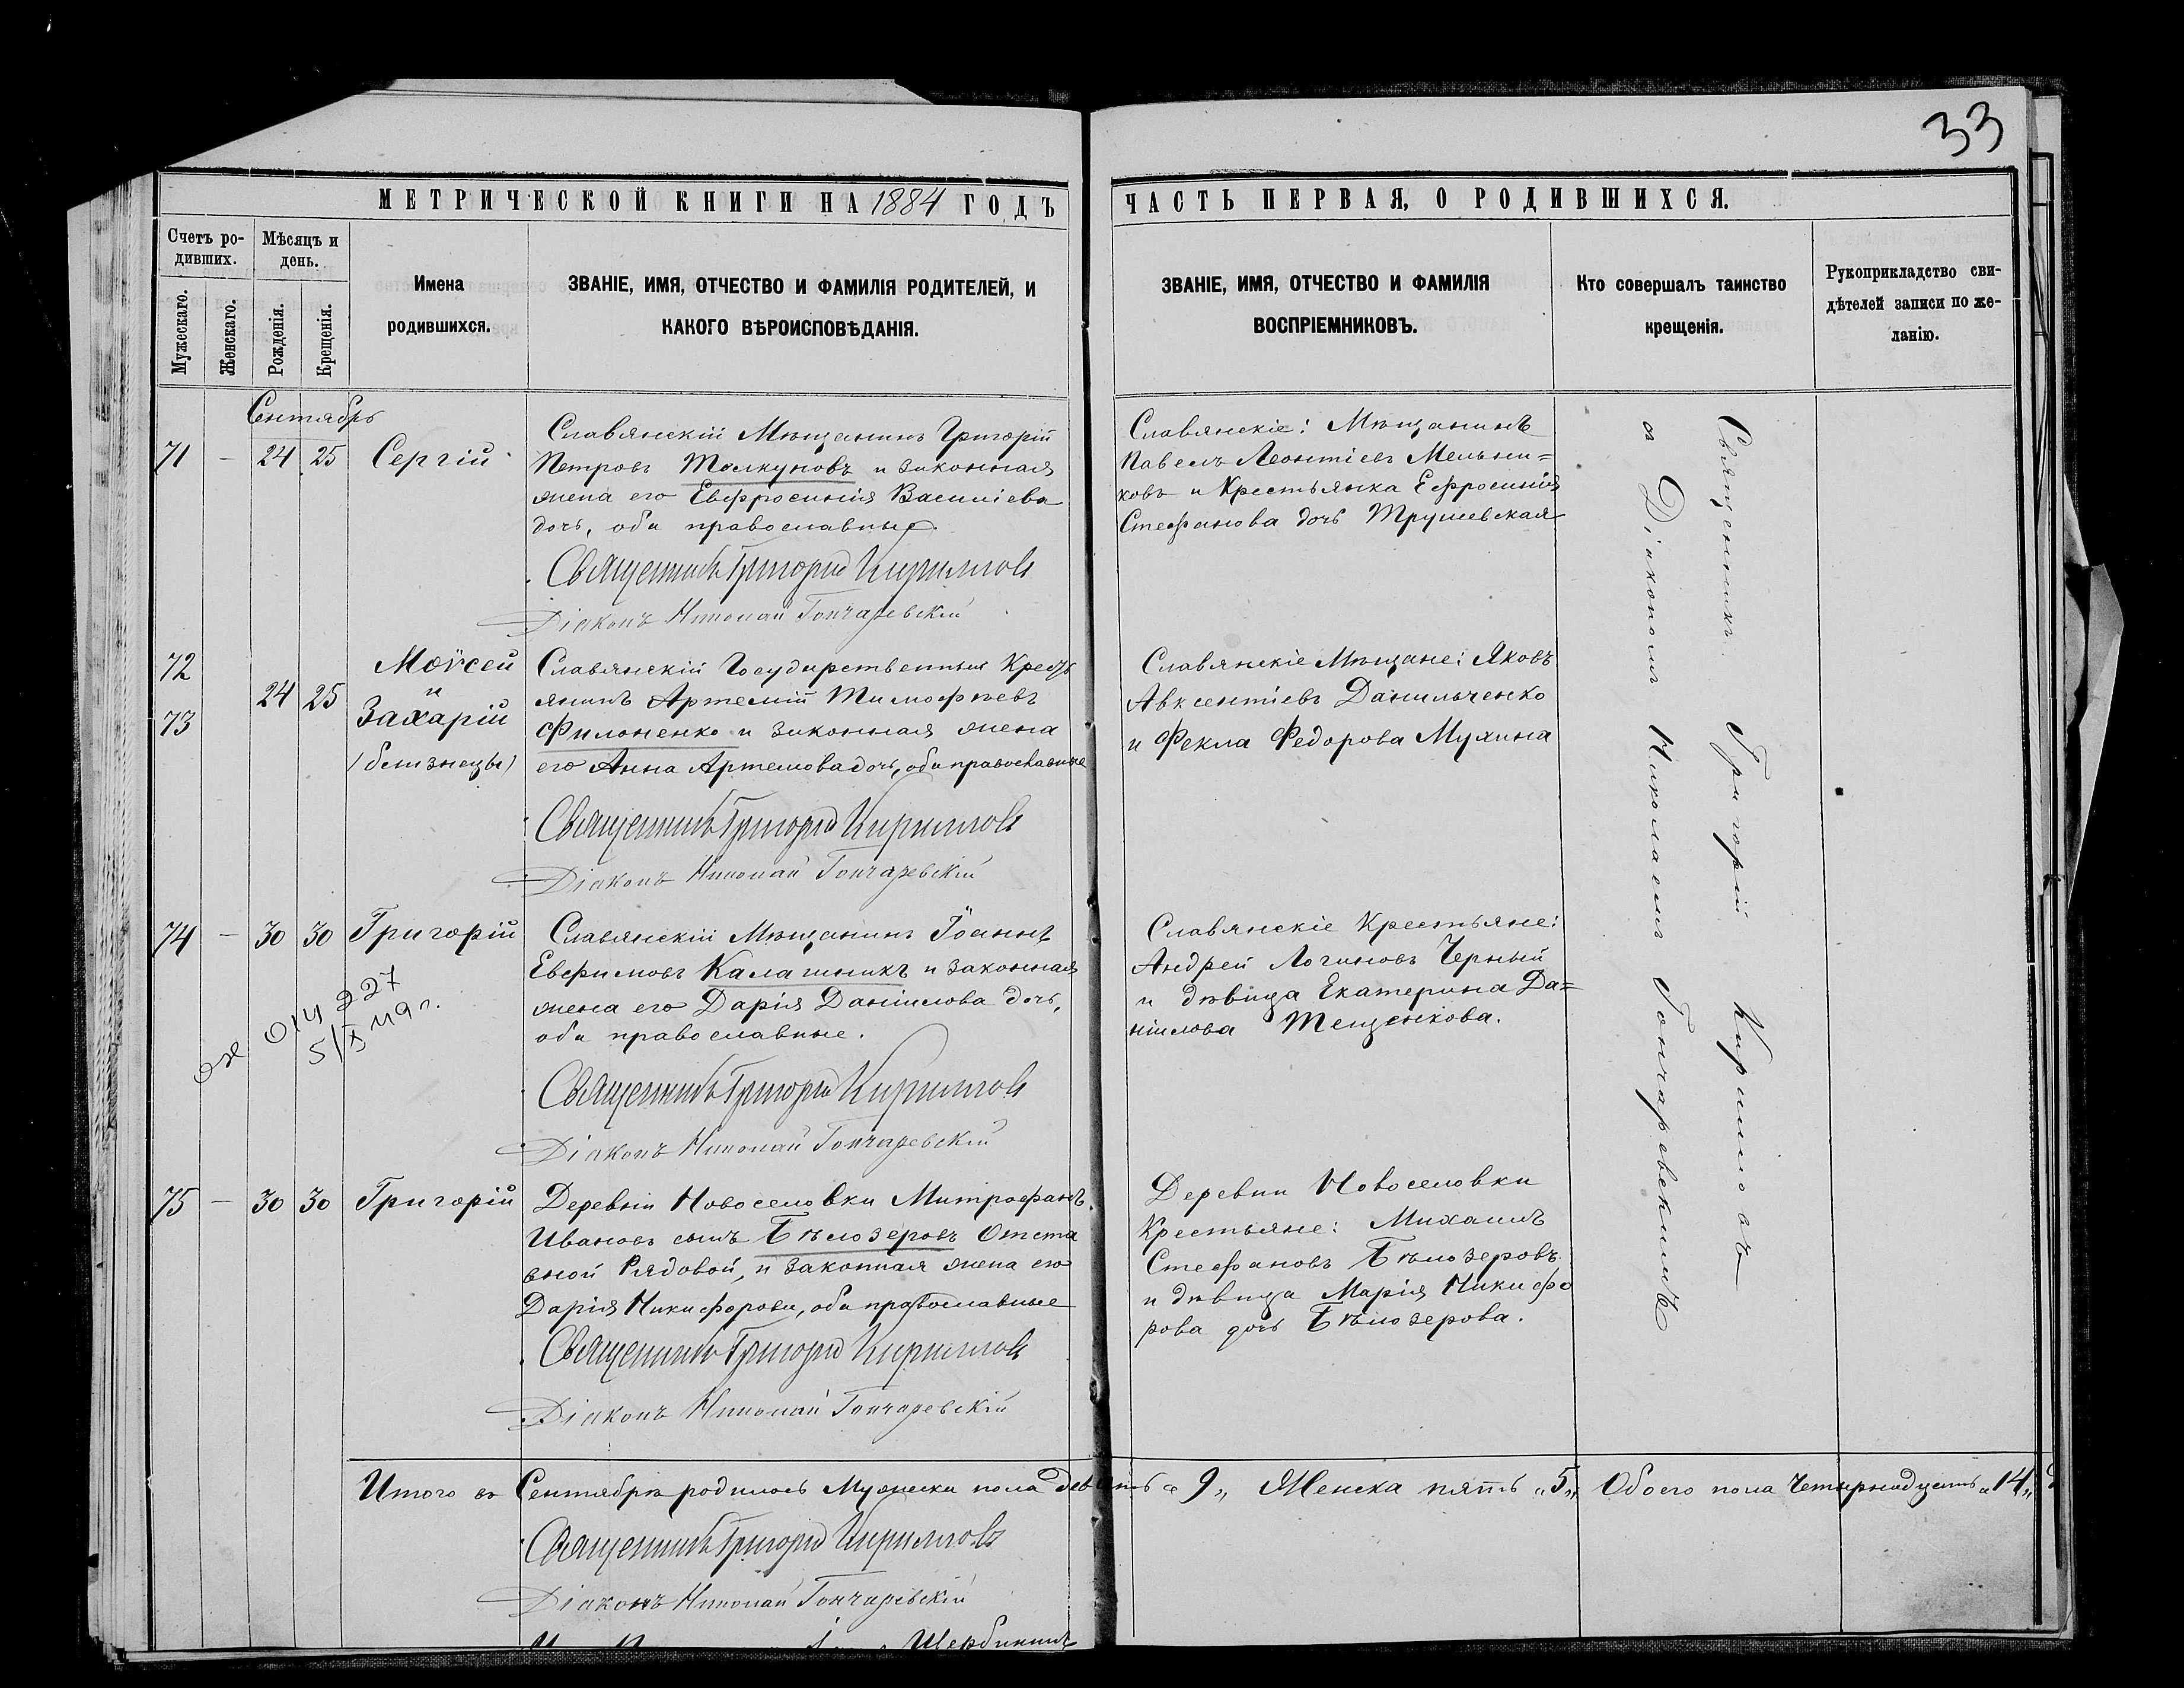 33
МЕТРИЧЕСКОЙ КНИГИ НА 1884 ГОДЪ
ЧАСТЬ ПЕРВАЯ, О РОДИВШИХСЯ.
Счетъ ро-
дившихъ.
Мужескаго.
Женскаго.
Мѣсяцъ и
день.
Рожденія.
Крещенія.
Имена
родившихся.
ЗВАНІЕ, ИМЯ, ОТЧЕСТВО И ФАМИЛІЯ РОДИТЕЛЕЙ, И
КАКОГО ВѢРОИСПОВѢДАНІЯ.
ЗВАНІЕ, ИМЯ, ОТЧЕСТВО И ФАМИЛІЯ
ВОСПРІЕМНИКОВЪ.
Кто совершалъ таинство
крещенія.
Рукоприкладство сви-
дѣтелей записи по же-
ланію.
Сентябрь
71 - 24 25 Сергій
Славянскій Мѣщанинъ Григорій
Петровъ Толкуновъ и законная
жена его Евфросинія Василіева
дочь, оба православные.
Священникъ Григорій Кирилловъ
Діаконъ Николай Гончаревскій
Славянскіе: Мѣщанинъ
Павелъ Леонтіевъ Мельни=
ковъ и Крестьянка Ефросинія
Стефанова дочь
72
73
24 25
Моѵсей
и
Захарій
(близнецы)
Славянскій Государственный Крест
янинъ Артемій Тимофѣевъ
Филоненко и законная жена
его Анна Артемова дочь, оба православные
Священникъ Григорій Кирилловъ
Діаконъ Николай Гончаревскій
Славянскіе Мѣщане: Яковъ
Авксентіевъ Данильченко
и Фекла Федорова Мухина
74 - 30 30 Григорій
227
Славянскій Мѣщанинъ Іоаннъ
Евфимовъ Калашникъ и законная
жена его Дарія Даніилова дочь,
оба православные.
Священникъ Григорій Кирилловъ
Діаконъ Николай Гончаревскій
Славянскіе Крестьяне:
Андрей Логиновъ Черный
и дѣвица Екатерина Да=
ніилова Тещенкова.
75 - 30 30 Григорій
Деревни Новоселовки Митрофанъ
Ивановъ сынъ Бѣлозеровъ Отста
вной Рядовой, и законная жена его
Дарія Никифорова, оба православные
Священникъ Григорій Кирилловъ
Діаконъ Николай Гончаревскій
Деревни Новоселовки
Крестьяне: Михаилъ
Стефановъ Бѣлозеровъ
и дѣвица Марія Никифо
рова дочь Бѣлозерова.
Священникъ Григорій Кирилловъ
съ Діакономъ Николаемъ Гончаревскимъ
Итого въ Сентябрѣ родилось Мужеска пола девять „9„ Женска пять „5„ Обоего пола Четырнадцать „14„
Священникъ Григорій Кирилловъ
Діаконъ Николай Гончаревскій